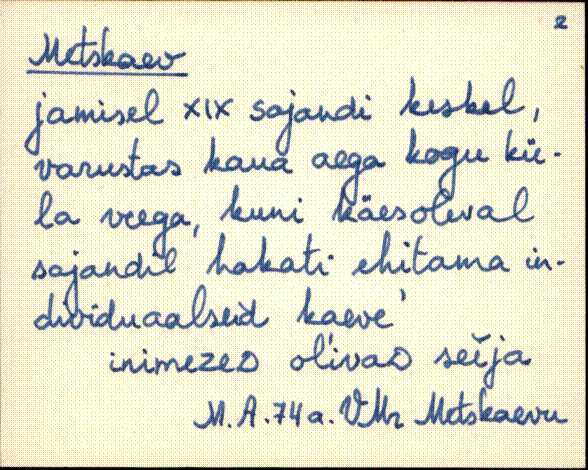 2
Metskaev
jamisel XIX sajandi keskel,
varustas kaua aega kogu kü-
la veega, kuni käesoleval
sajandil hakati ehitama in-
dividuaalseid kaeve'
inimezeD ol'ivaD seija
M.A.74a. VMr Metskaevu